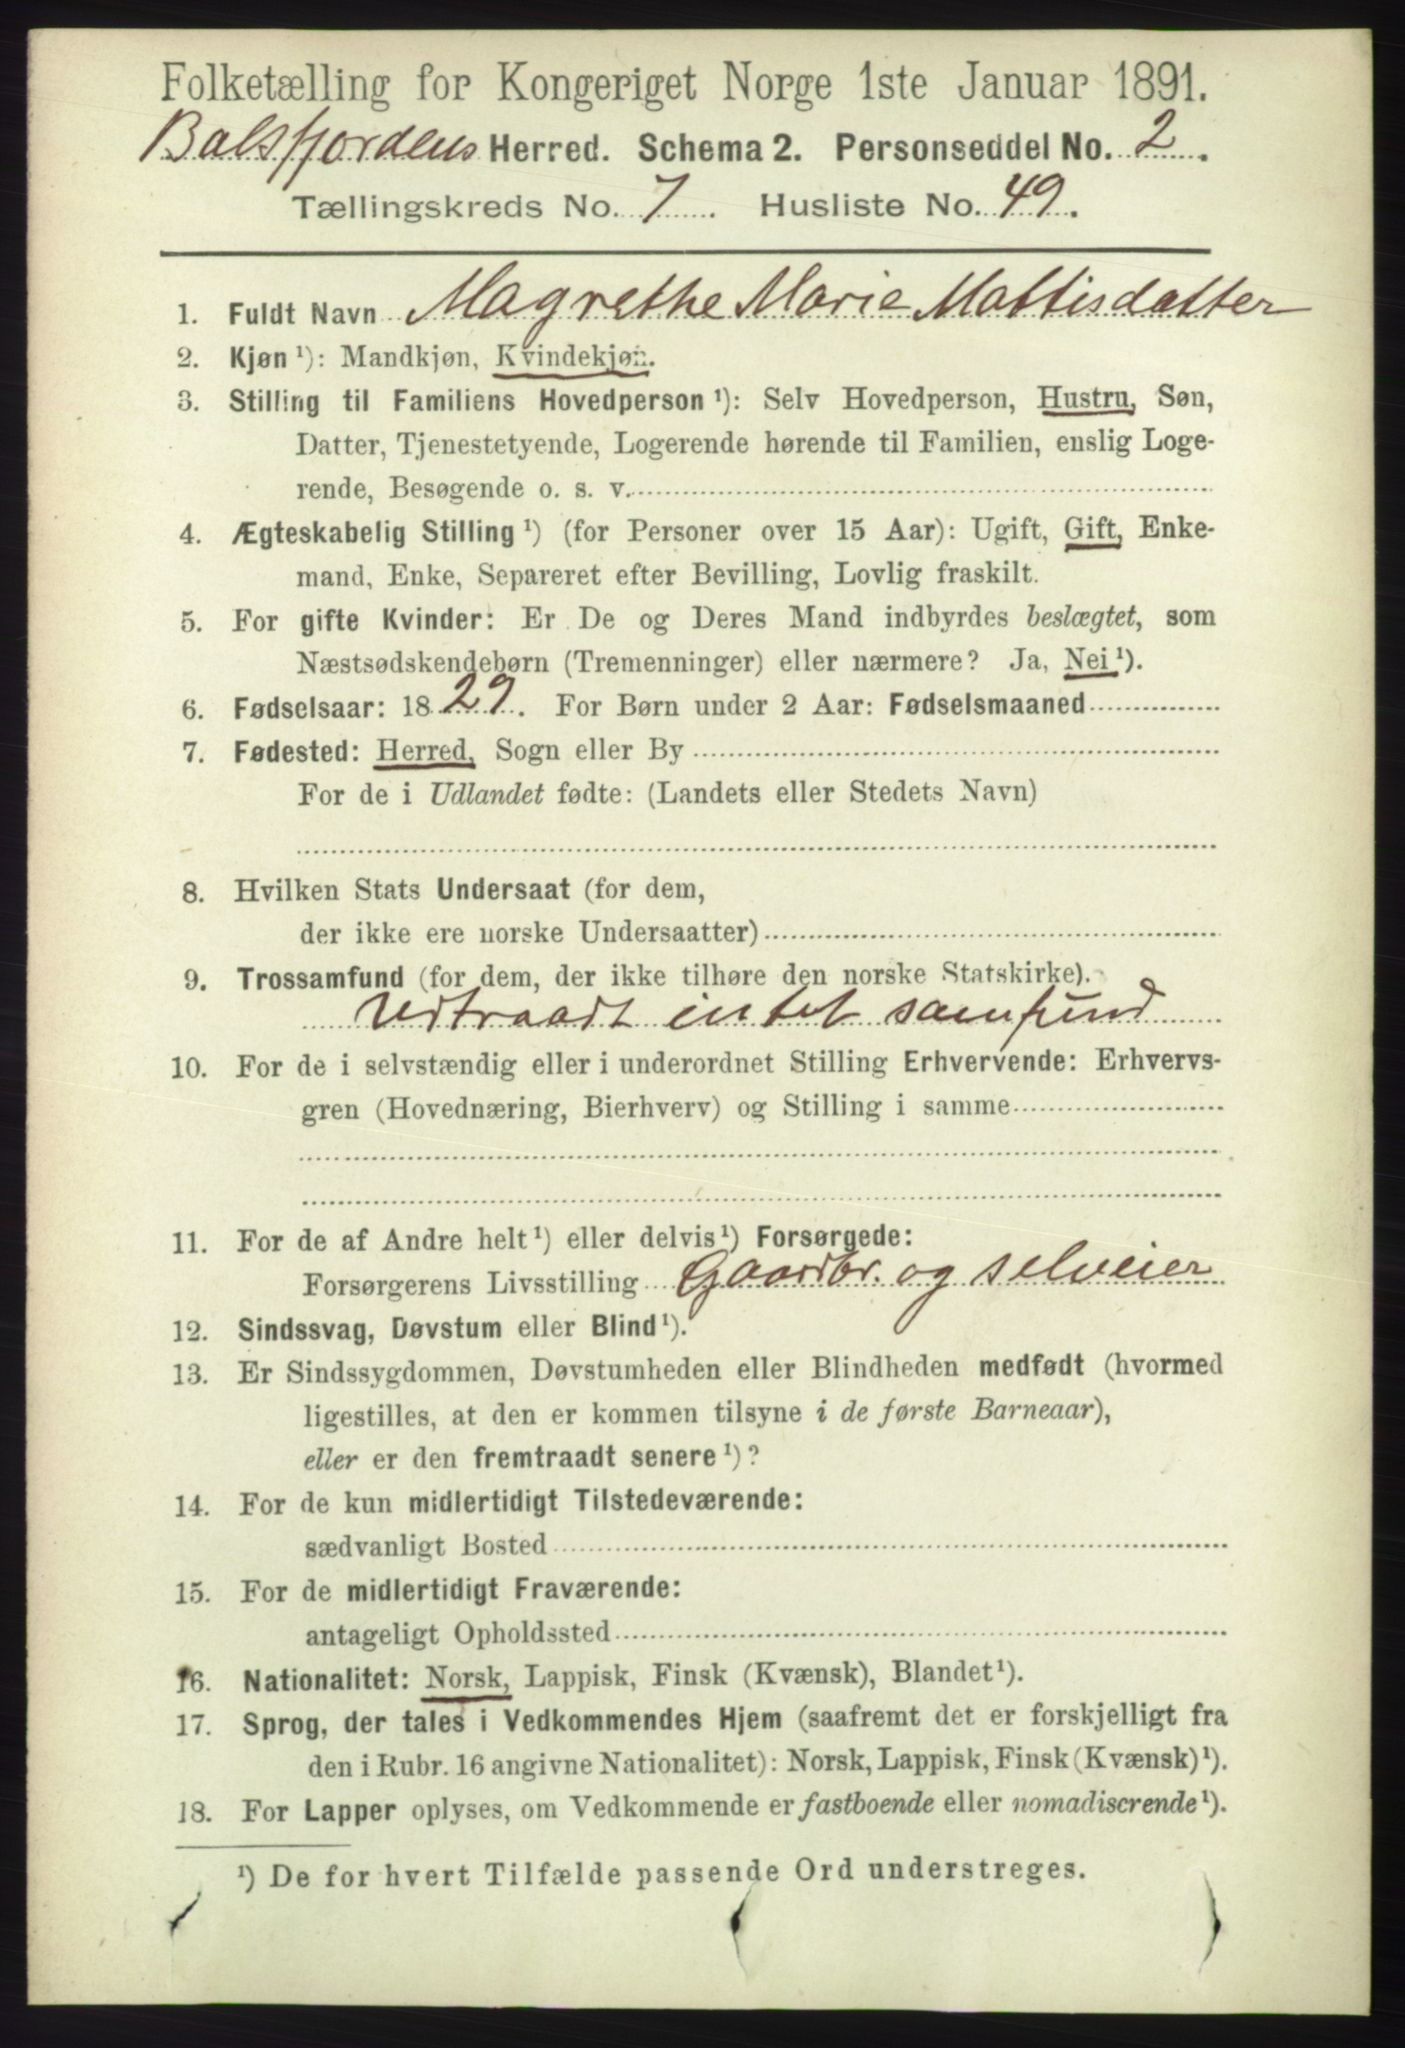 Folketælling for Kongeriget Norge 1ste Januar 1891.
Balsfjordens Herred. Schema 2. Personseddel No. 2.
Tællingskreds No. 7. Husliste No. 49.
1. Fuldt Navn Magrethe Marie Mattisdatter
2. Kjøn ¹): Mandkjøn, Kvindekjøn.
3. Stilling til Familiens Hovedperson ¹): Selv Hovedperson, Hustru, Søn,
Datter, Tjenestetyende, Logerende hørende til Familien, enslig Loge-
rende, Besøgende o. s. v.
4. Ægteskabelig Stilling ¹) (for Personer over 15 Aar): Ugift, Gift, Enke-
mand, Enke, Separeret efter Bevilling, Lovlig fraskilt.
5. For gifte Kvinder: Er De og Deres Mand indbyrdes beslægtet, som
Næstsødskendebørn (Tremenninger) eller nærmere? Ja, Nei ¹).
6. Fødselsaar: 1829. For Børn under 2 Aar: Fødselsmaaned
7. Fødested: Herred, Sogn eller By
For de i Udlandet fødte: (Landets eller Stedets Navn)
8. Hvilken Stats Undersaat (for dem,
der ikke ere norske Undersaatter)
9. Trossamfund (for dem, der ikke tilhøre den norske Statskirke).
Udtraadt intet samfund
10. For de i selvstændig eller i underordnet Stilling Erhvervende: Erhvervs-
gren (Hovednæring, Bierhverv) og Stilling i samme
11. For de af Andre helt ¹) eller delvis ¹) Forsørgede:
Forsørgerens Livsstilling Gaardbr. og selveier
12. Sindssvag, Døvstum eller Blind ¹).
13. Er Sindssygdommen, Døvstumheden eller Blindheden medfødt (hvormed
ligestilles, at den er kommen tilsyne i de første Barneaar),
eller er den fremtraadt senere ¹)?
14. For de kun midlertidigt Tilstedeværende:
sædvanligt Bosted
15. For de midlertidigt Fraværende:
antageligt Opholdssted
16. Nationalitet: Norsk, Lappisk, Finsk (Kvænsk), Blandet ¹).
17. Sprog, der tales i Vedkommendes Hjem (saafremt det er forskjelligt fra
den i Rubr. 16 angivne Nationalitet): Norsk, Lappisk, Finsk (Kvænsk) ¹).
18. For Lapper oplyses, om Vedkommende er fastboende eller nomadiserende ¹).
¹) De for hvert Tilfælde passende Ord understreges.